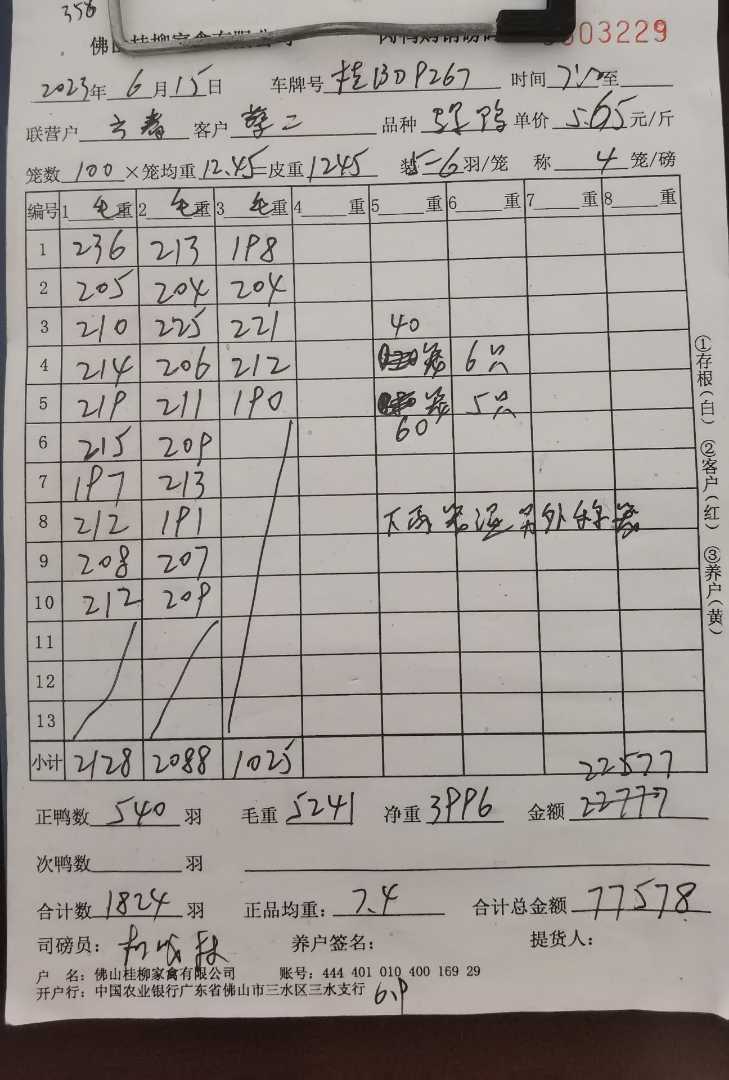 356
佛山桂柳家禽有限公司 0003229
2023年 6 月 15 日 车牌号 桂1309267 时间 至
联营户 客户 品种 野鸭 单价 5.65 元/斤
笼数 100 ×笼均重 12.45 =皮重 1245 装 5-6 羽/笼 称 4 笼/磅
编号 1 毛重 2 毛重 3 毛重 4 重 5 重 6 重 7 重 8 重
1 236 213 198
2 205 204 204
3 210 225 221 40
4 214 206 212 笼 6只
5 219 211 190 笼 5只
6 215 209 60
7 197 213
8 212 191
9 208 207
10 212 209
11
12
13
小计 2128 2088 1025
22577
正鸭数 540 羽 毛重 5241 净重 3996 金额 22777
次鸭数 羽
合计数 1824 羽 正品均重: 7.4 合计总金额 77578
司磅员: 养户签名: 提货人:
户 名: 佛山桂柳家禽有限公司 账号: 444 401 010 400 169 29
开户行: 中国农业银行广东省佛山市三水区三水支行 6.9
①存根(白) ②客户(红) ③养户(黄)